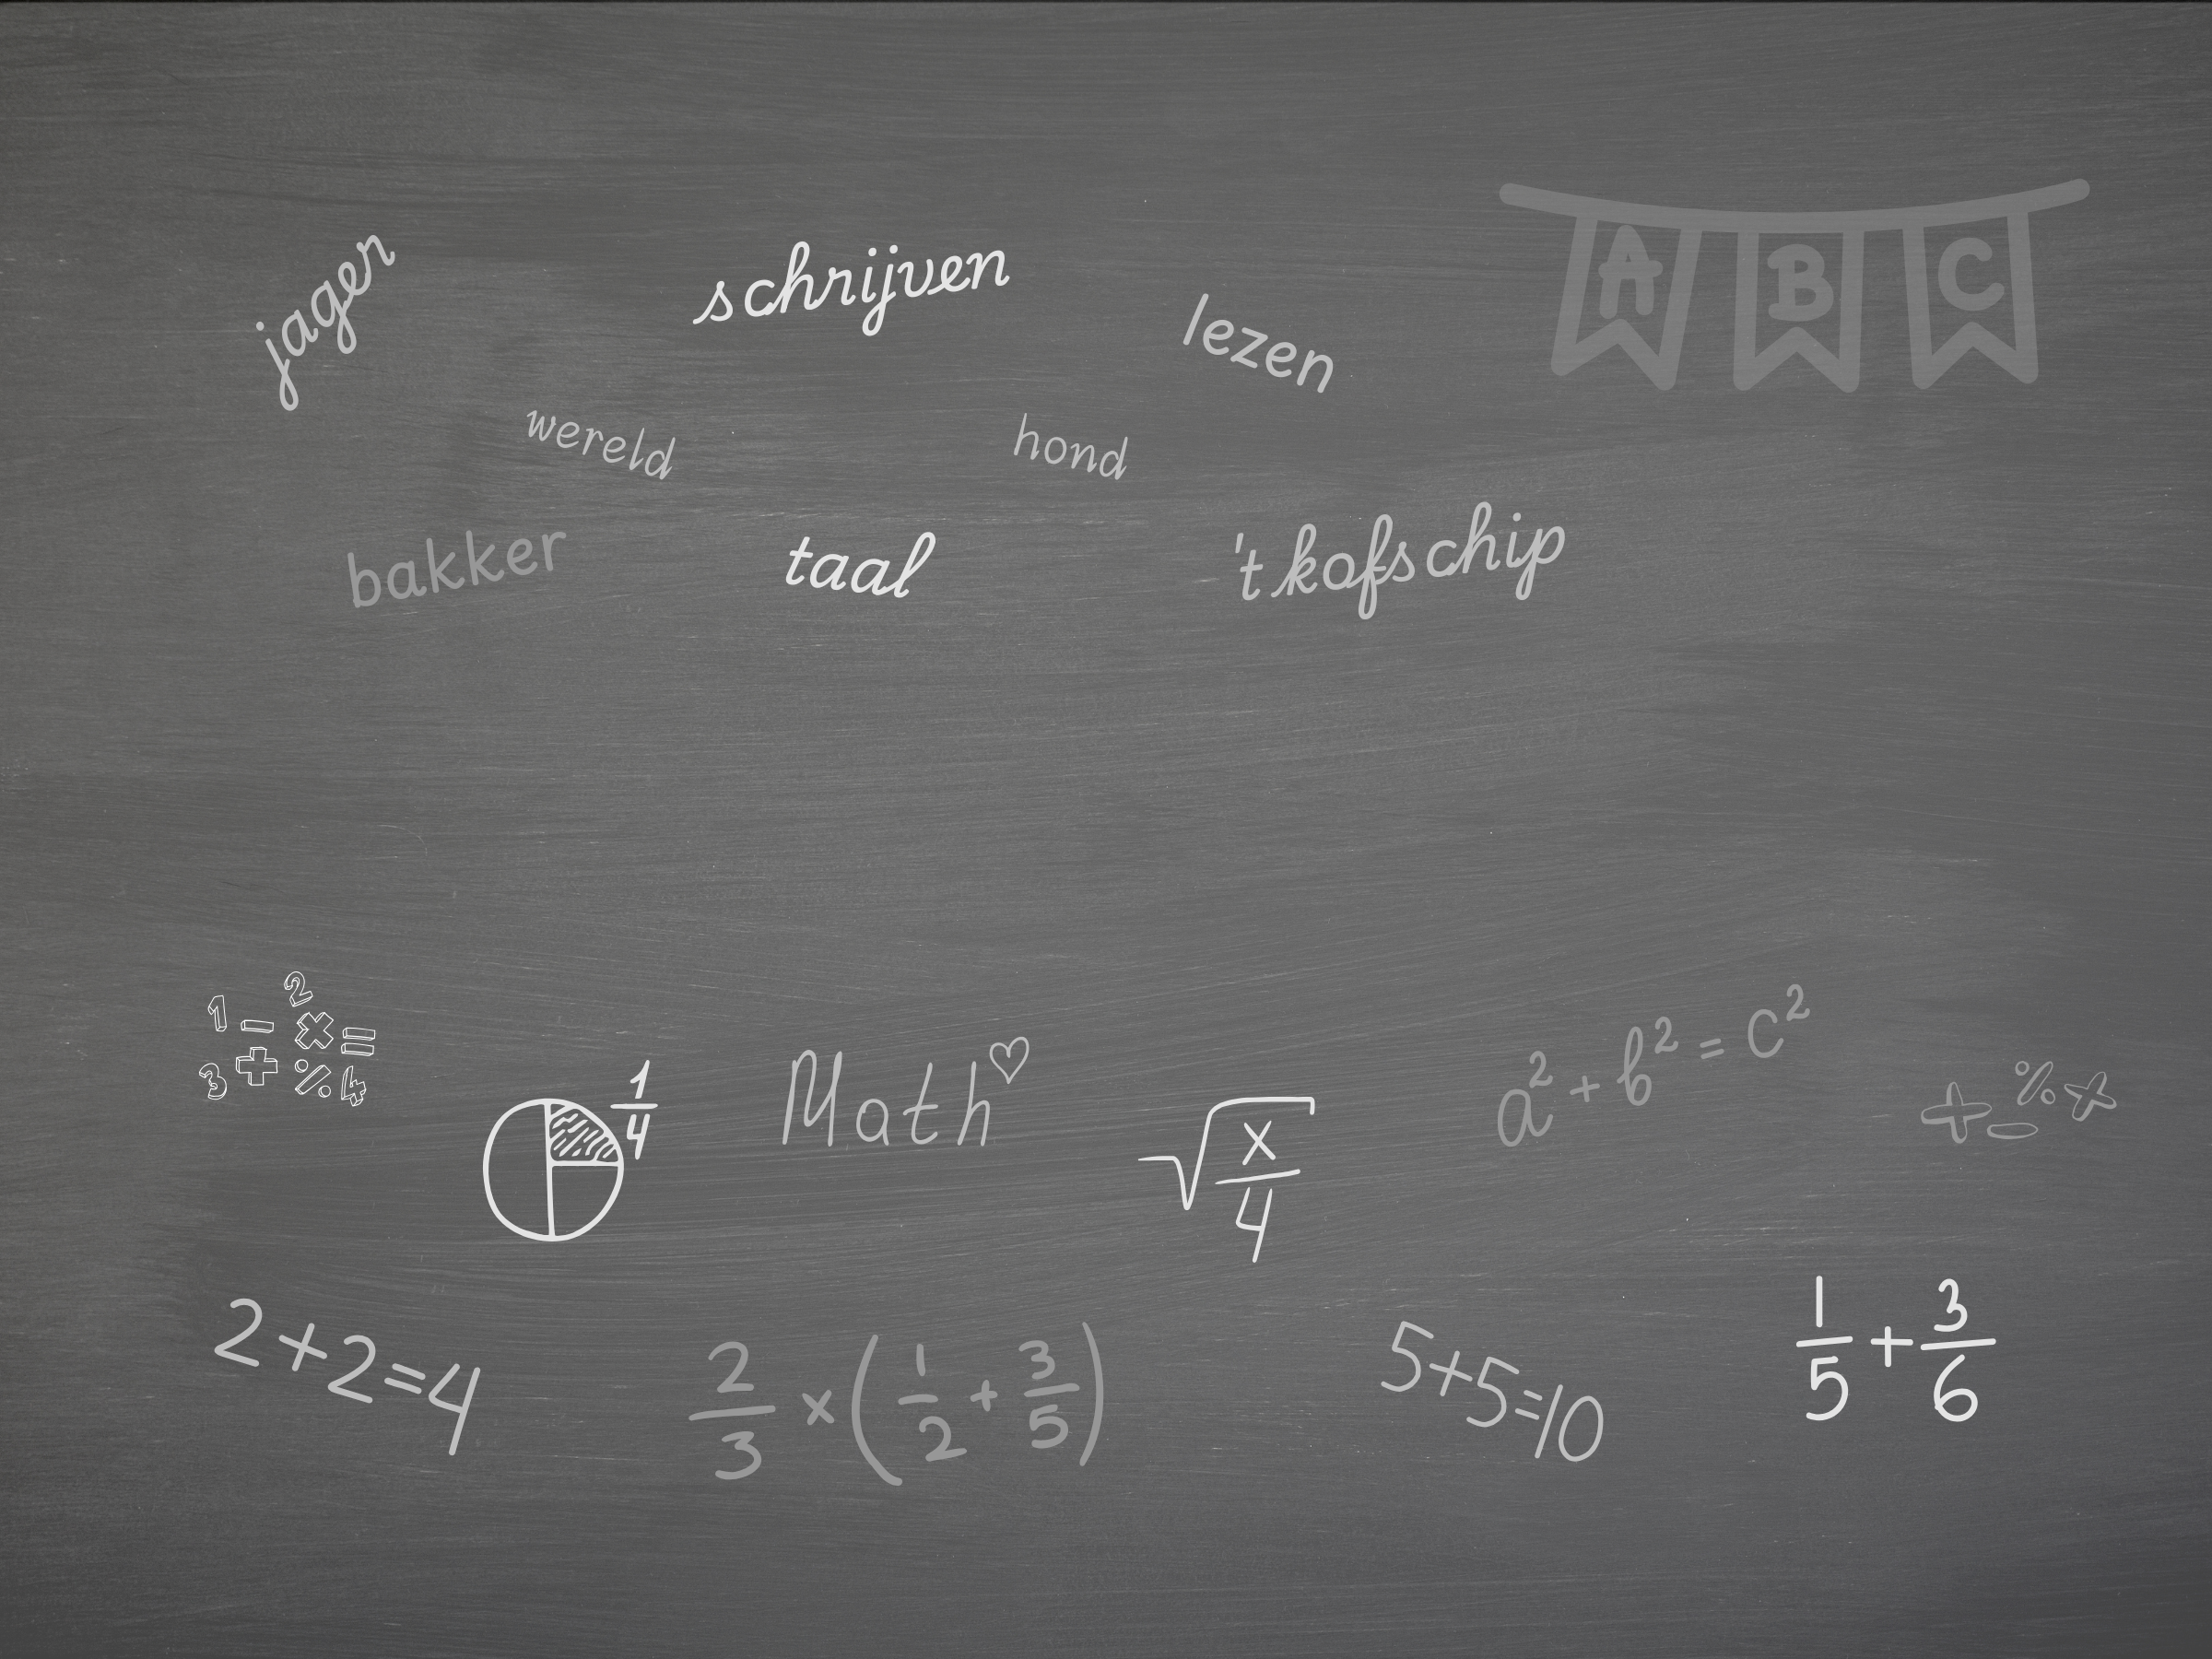 A B C
jager
schrijven
lezen
wereld
hond
bakker
taal
't kofschip
1 - 2 x =
3 + % 4
1/4
Math♡
√x/4
a² + b² = c²
+ - % x
2+2=4
2/3 x (1/2 + 3/5)
5+5=10
1/5 + 3/6